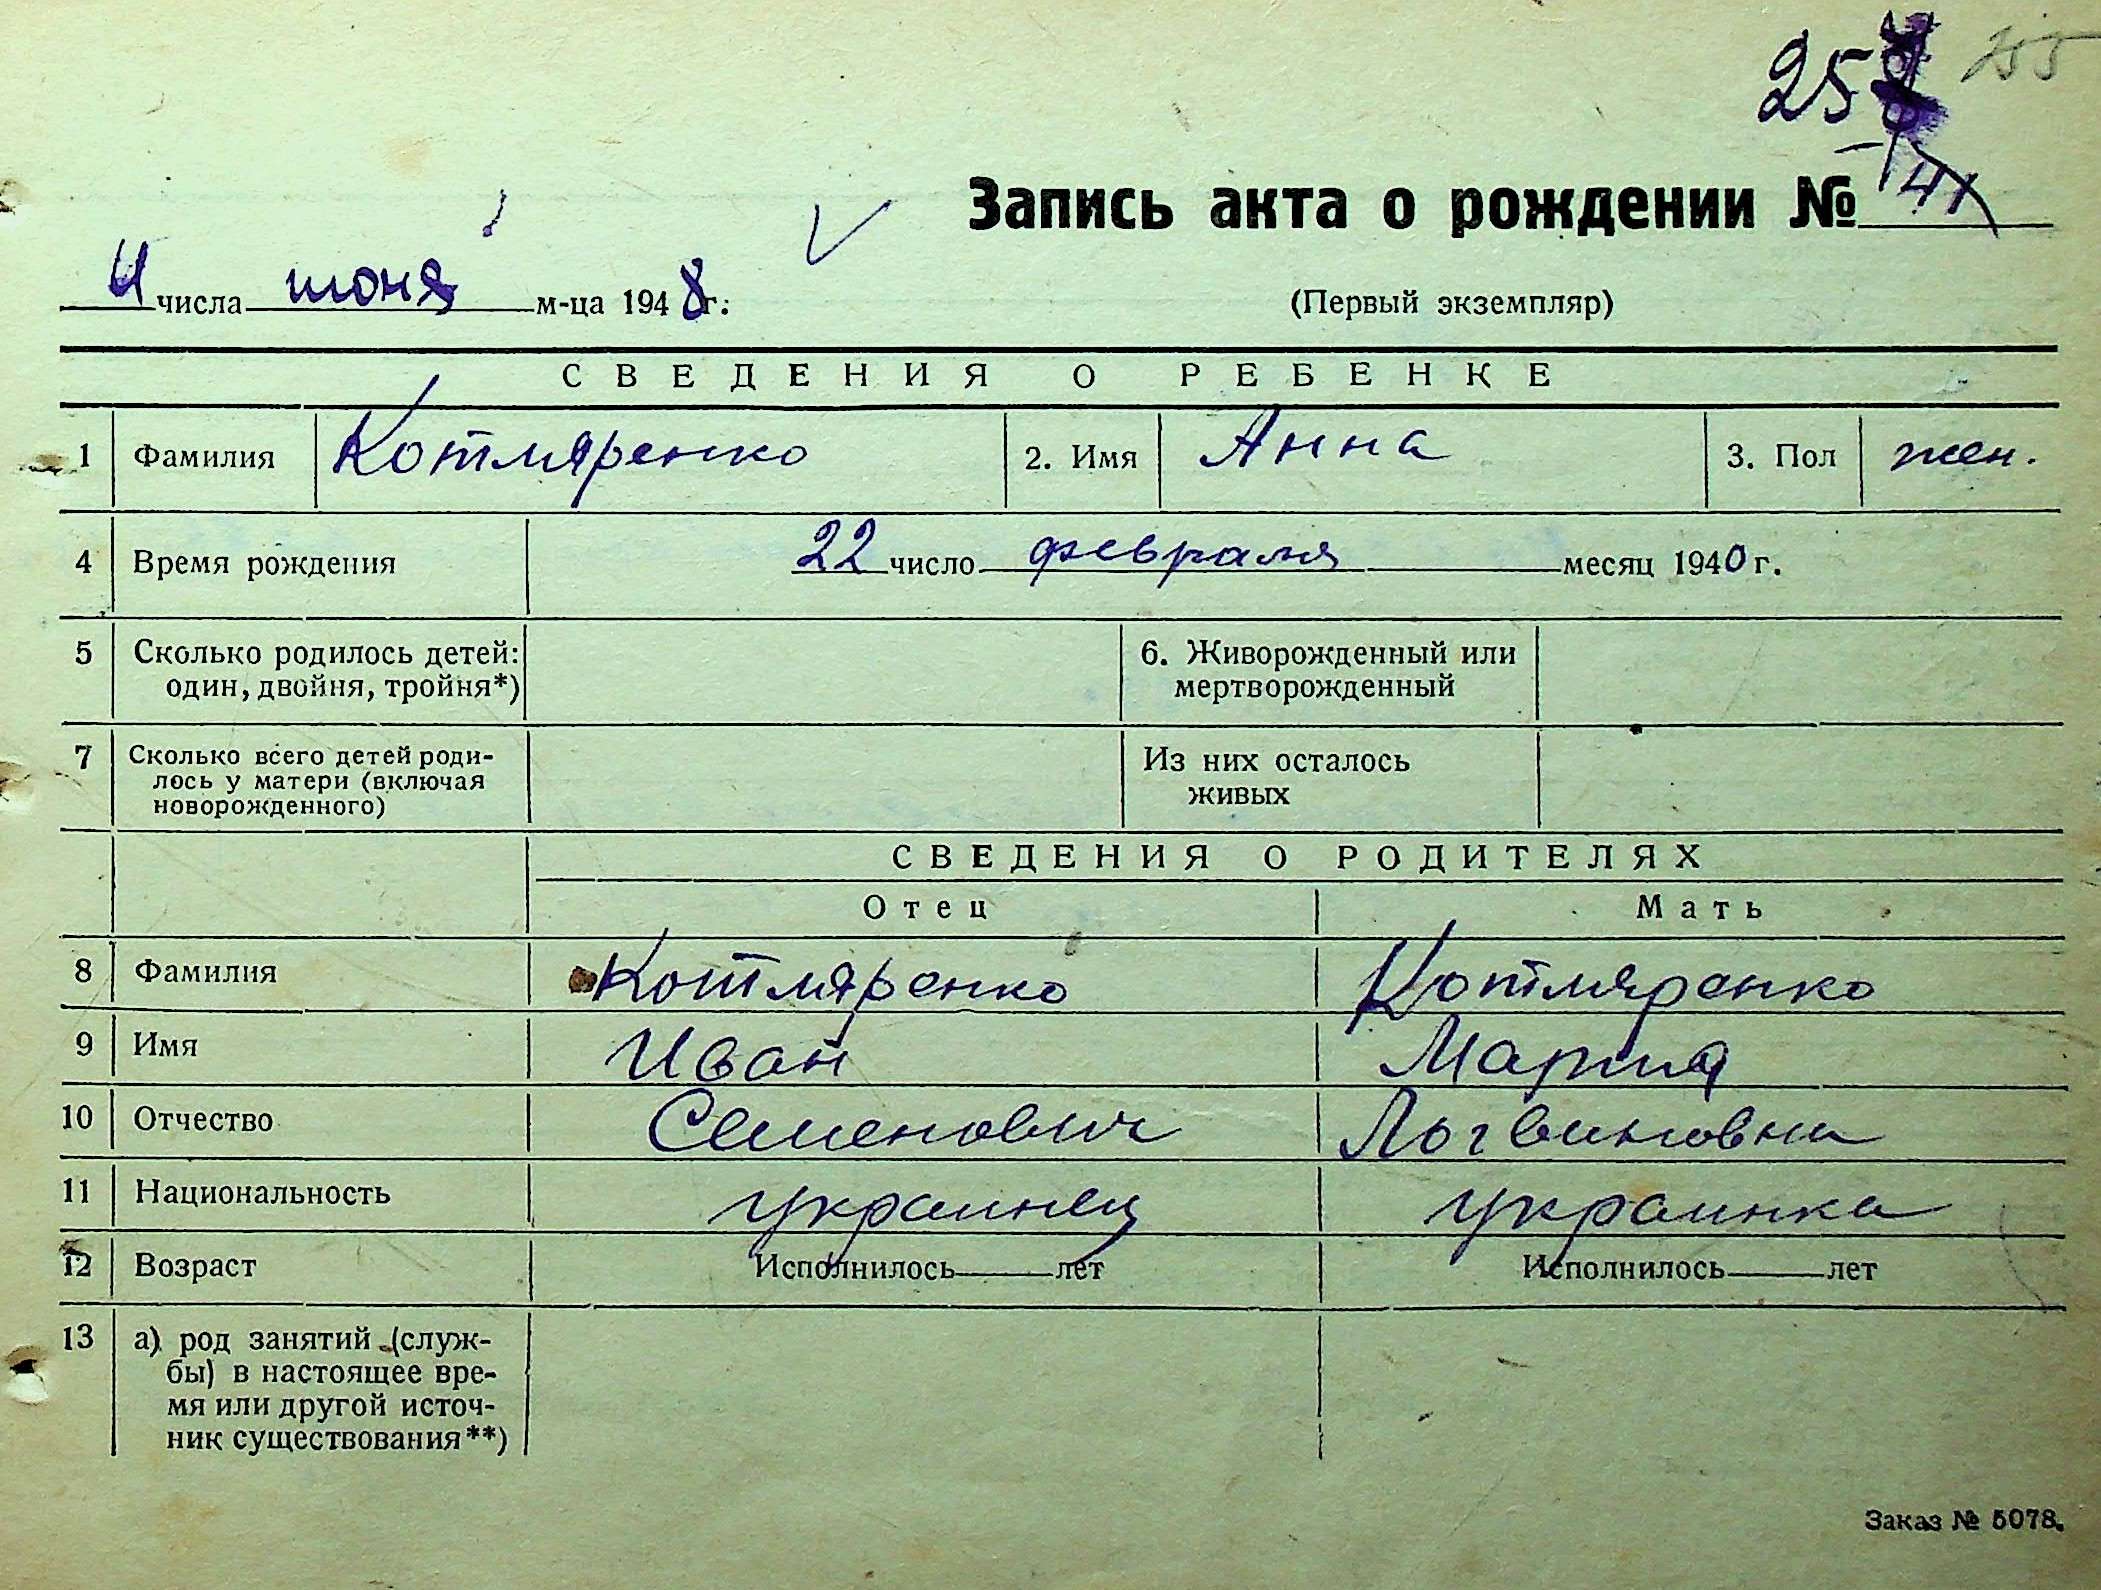 25
255
Запись акта о рождении №
4 числа июня м-ца 1948 г.
(Первый экземпляр)
СВЕДЕНИЯ О РЕБЕНКЕ
1 Фамилия Котляренко 2. Имя Анна 3. Пол жен.
4 Время рождения 22 число февраля месяц 1940 г.
5 Сколько родилось детей: 6. Живорожденный или
один, двойня, тройня*) мертворожденный
7 Сколько всего детей роди- Из них осталось
лось у матери (включая живых
новорожденного)
СВЕДЕНИЯ О РОДИТЕЛЯХ
Отец Мать
8 Фамилия Котляренко Котляренко
9 Имя Иван Мария
10 Отчество Семенович Логвиновна
11 Национальность украинец украинка
12 Возраст Исполнилось лет Исполнилось лет
13 а) род занятий (служ-
бы) в настоящее вре-
мя или другой источ-
ник существования**)
Заказ № 5078.